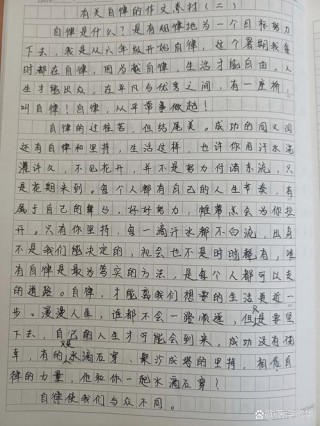 有关自律的作文素材(二)
自律是什么?是有规律地为一个目标努力
下去,我是从六年级开始自律,这个暑期我每
时都在自律,因为越自律,生活才能自由,人
生才能出众,在平凡与优秀之间,有一座桥,
叫自律!自律,从平常事做起!
自律的过程苦,但结尾美。成功的同义词
还有自律和坚持,生活这样,也许你用汗水浇
灌许久,不见花开,并不是努力付诸东流,只
是花期未到。每个人都有自己的人生节奏,有
属于自己的舞台,好好努力,帷幕总会为你拉
开。只有你坚持,每一滴汗水都不白流,出身
不是我们能决定的,机会也不是时时都有,唯
有自律是最为笃实的方法,是每个人都可以走
的道路。自律,才能离我们想要的生活更近一
步。漫漫人生,谁都不会一路顺遂,但只要坚
下去,自己的人生才可能会到来,成功没有快
车,有的是水滴石穿,聚沙成塔的坚持,相信自
律的力量,他和你一起水滴石穿!
自律使我们与众不同。